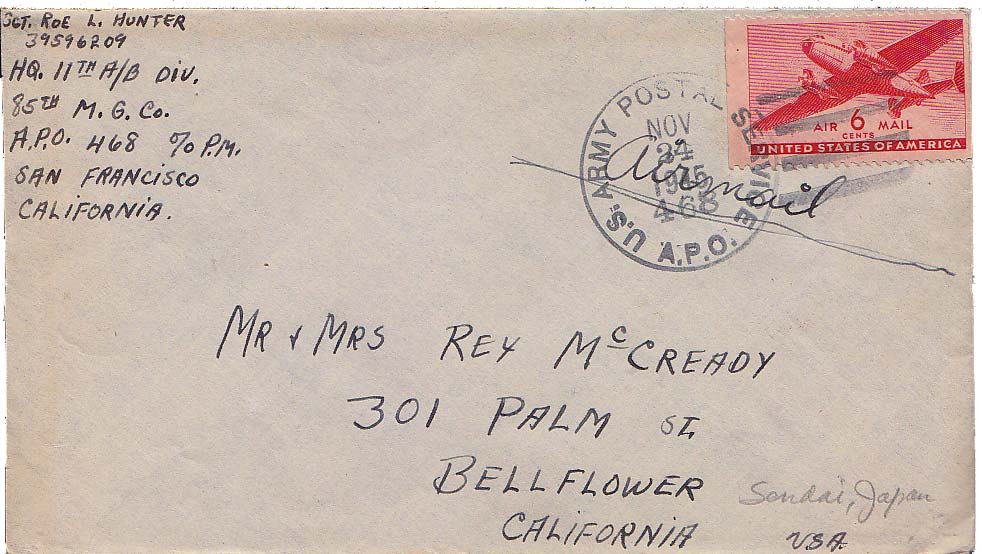 SGT. ROE L. HUNTER
39596209
HQ. 11TH A/B DIV.
85TH M. G. CO.
A.P.O. 468 % P.M.
SAN FRANCISCO
CALIFORNIA.
U.S. ARMY POSTAL SERVICE
NOV
24
1945
468
A.P.O.
Air mail
AIR 6 MAIL
CENTS
UNITED STATES OF AMERICA
MR & MRS REX McCREADY
301 PALM ST.
BELLFLOWER
CALIFORNIA
Sendai, Japan
USA